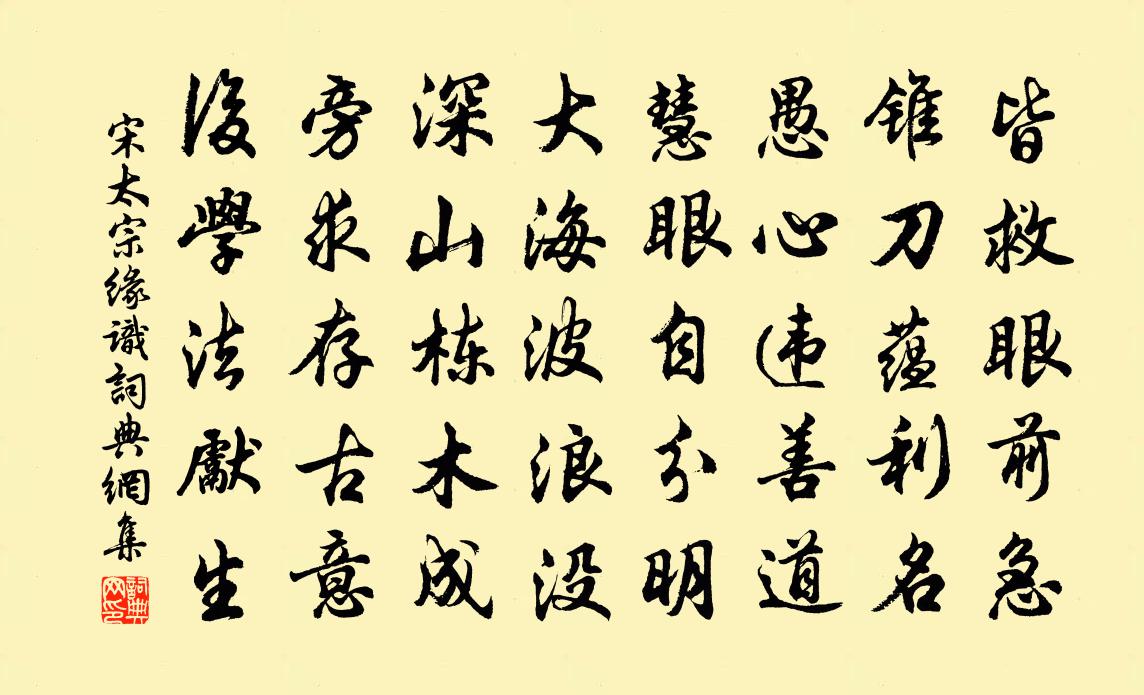 皆救眼前急
錐刀蘊利名
愚心違善道
慧眼自分明
大海波浪没
深山棟木成
旁求存古意
後學法獻生
宋太宗緣識詞典網集
詞典網印